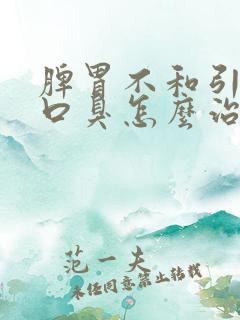 脾胃不和引
口臭怎麼治
范一夫
未经同意禁止转载